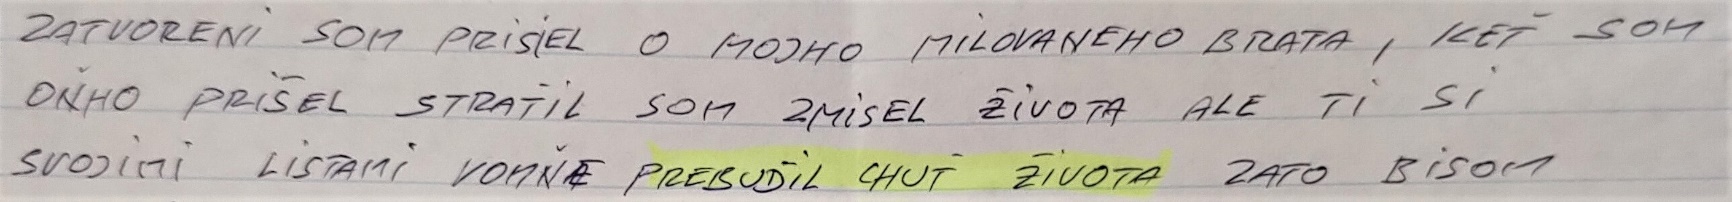 ZATVORENi SOM PRiSiEL O MOJHO MiLOVANEHO BRATA, KEŤ SOM
OŇHO PRiŠEL STRATiL SOM ZMiSEL ŽiVOTA ALE Ti Si
SVOJiMi LiSTAMi VOMŇE PREBUĎiL CHUŤ ŽiVOTA ZATO BiSOM